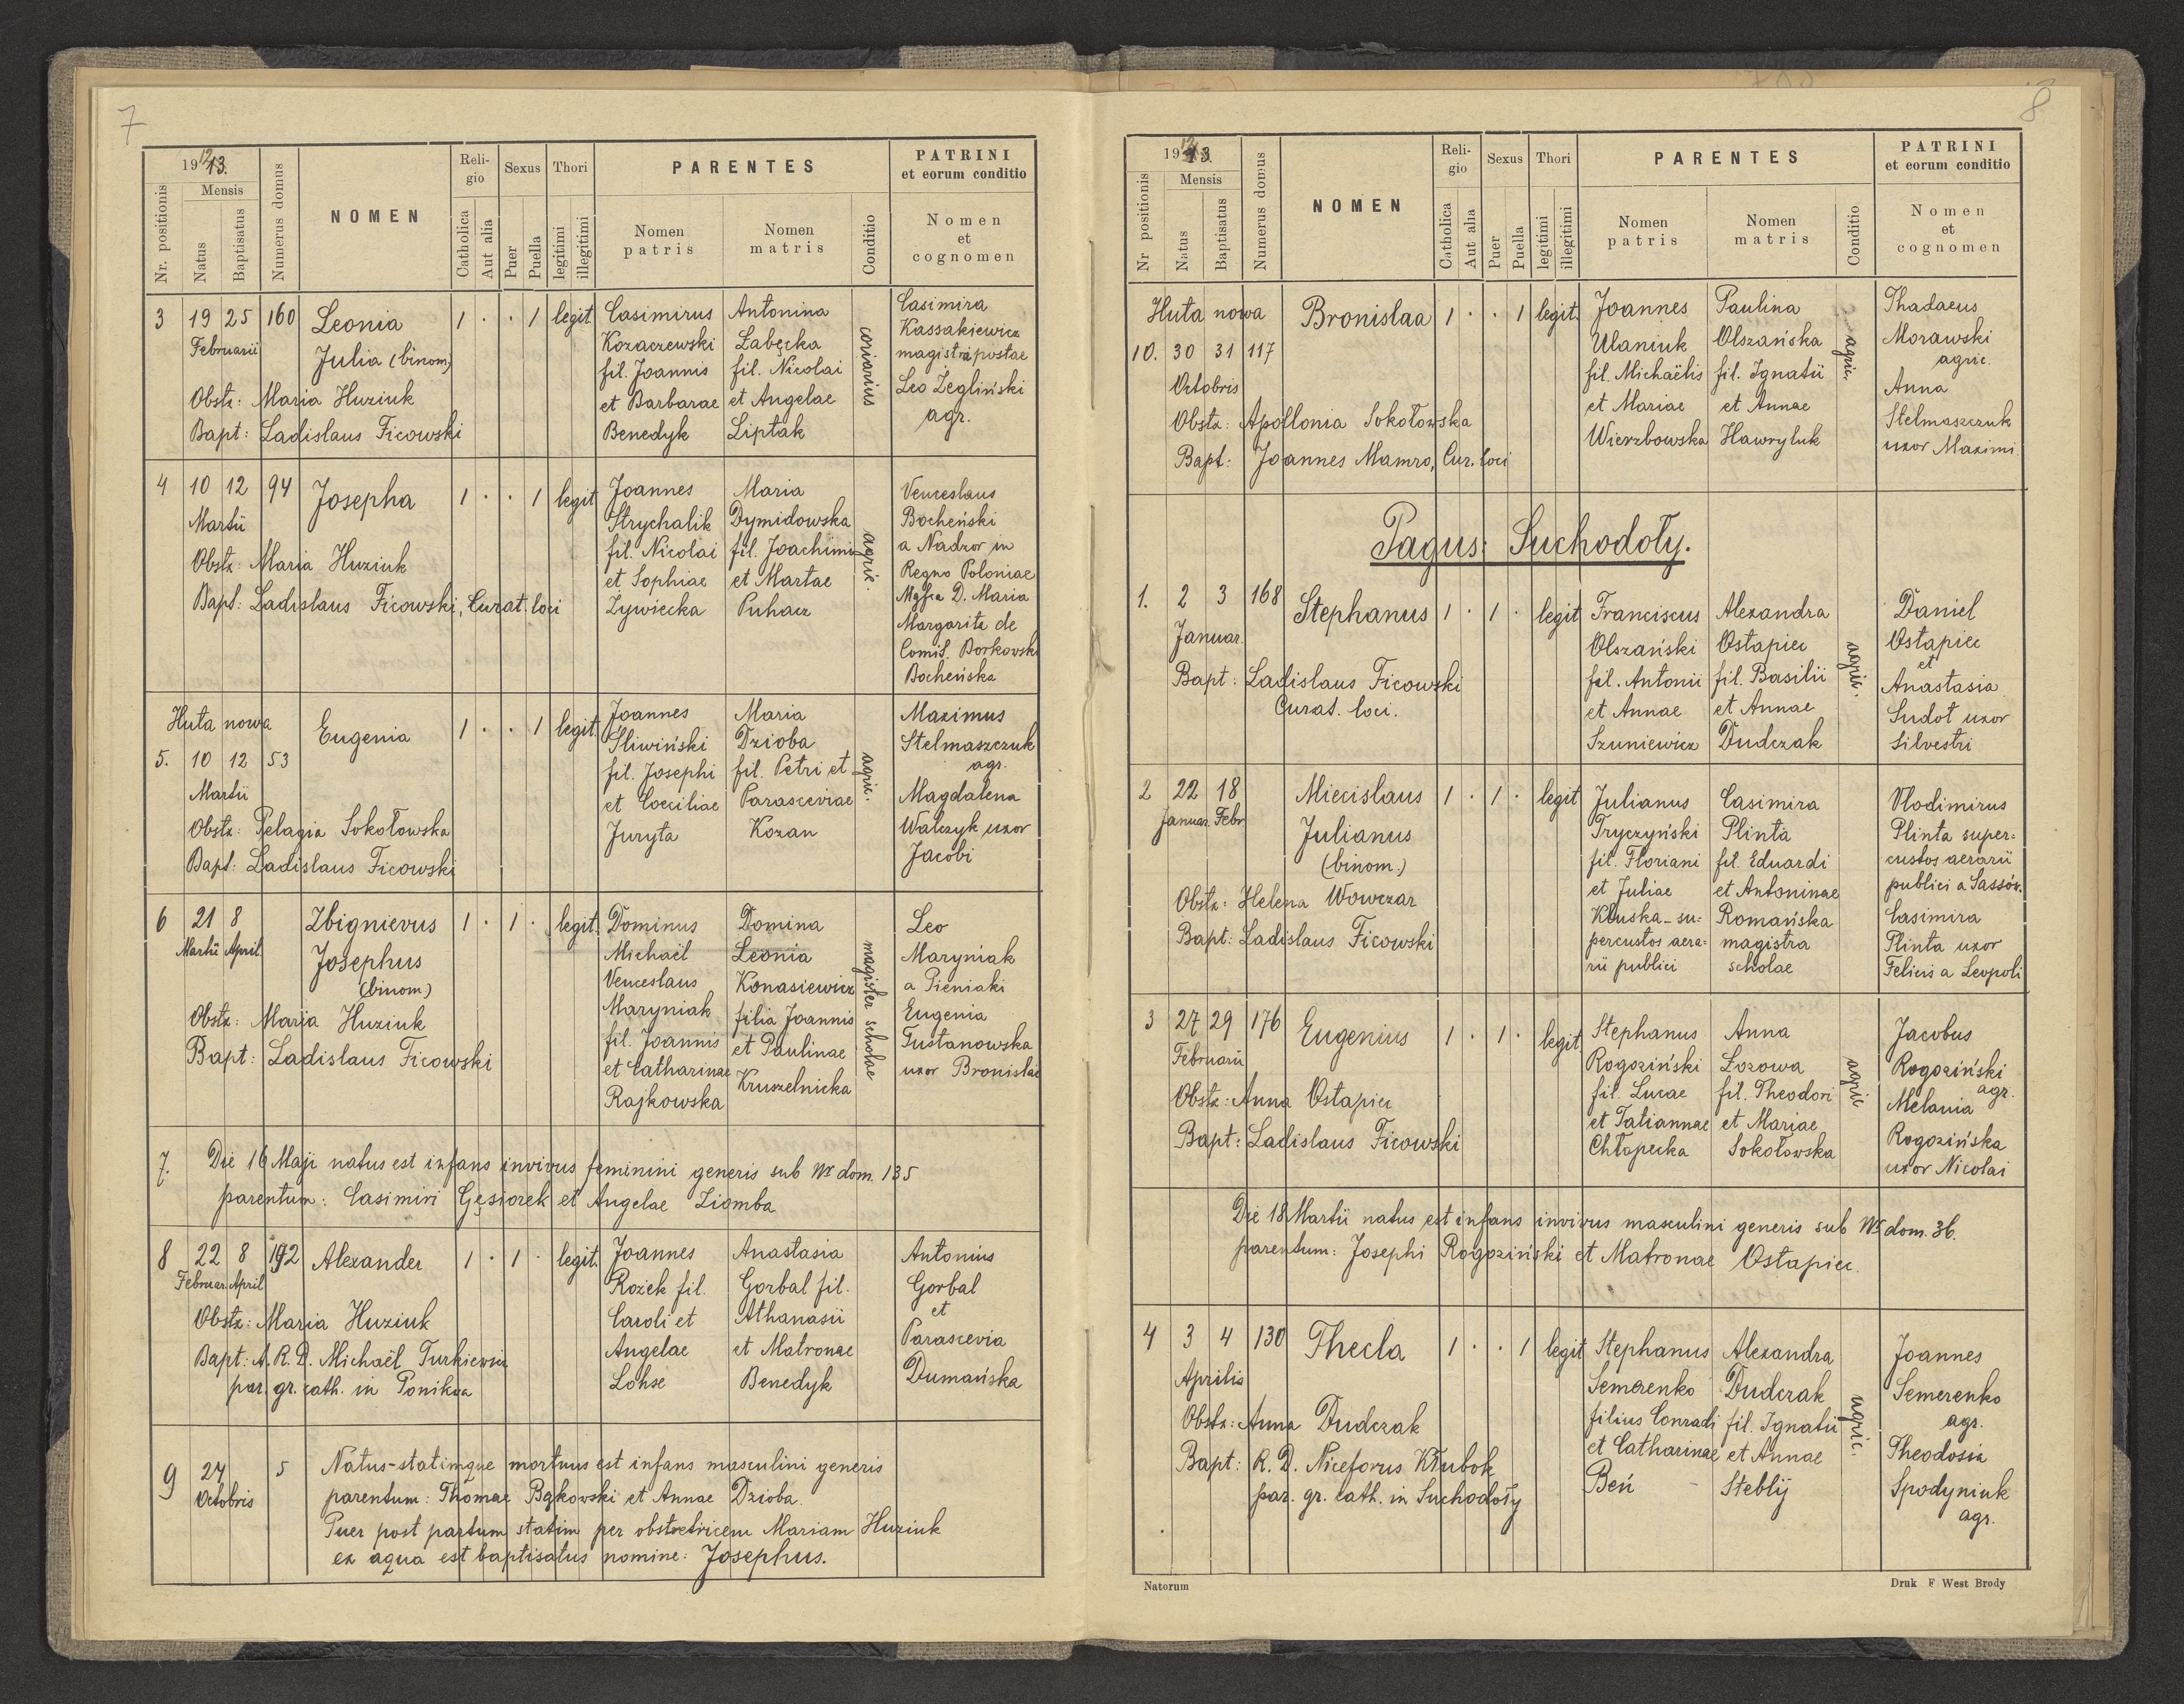 7
1913.
Nr. positionis
Mensis
Natus
Baptisatus
Numerus domus
NOMEN
Religio
Catholica
Aut alia
Sexus
Puer
Puella
Thori
legitimi
illegitimi
PARENTES
Nomen patris
Nomen matris
Conditio
PATRINI
et eorum conditio
Nomen
et
cognomen
3 19 25 160 Leonia 1 · · 1 legit. Casimirus Antonina coriarius Casimira
Februarii Julia (binom) Kozaczewski Łabęcka Kassakiewicz
fil. Joannis fil. Nicolai magistri postae
Obstz: Maria Huziuk et Barbarae et Angelae Leo Żegliński
Bapt: Ladislaus Ficowski Benedyk Liptak agr.
4 10 12 94 Josepha 1 · · 1 legit. Joannes Maria agric. Venceslaus
Martii Strychalik Dymidowska Bocheński
Obstz: Maria Huziuk fil. Nicolai fil. Joachimi a Nadzor in
et Sophiae et Martae Regno Poloniae
Bapt: Ladislaus Ficowski, Curat. loci Żywiecka Puhacz D. Maria
Margarita de
Comit. Borkowski
Bocheńska
Huta nowa Eugenia 1 · · 1 legit. Joannes Maria agric. Maximus
Śliwiński Dzioba Stelmaszczuk
5. 10 12 53 fil. Josephi fil. Petri et agr.
Martii et Coeciliae Parasceviae Magdalena
Obstz: Pelagia Sokołowska Juryta Kozan Walczyk uxor
Bapt: Ladislaus Ficowski Jacobi
6 21 8 Zbignievus 1 · 1 · legit. Dominus Domina magister scholae Leo
Martii April. Josephus Michaël Leonia Maryniak
(binom) Venceslaus Konasiewicz a Pieniaki
Obstz: Maria Huziuk Maryniak filia Joannis Eugenia
Bapt: Ladislaus Ficowski fil. Joannis et Paulinae Tustanowska
et Catharinae Kruszelnicka uxor Bronislai
Rajkowska
7. Die 16 Maji natus est infans invivus feminini generis sub Nr dom. 135
parentum: Casimiri Gęsiorek et Angelae Ziomba
8 22 8 192 Alexander 1 · 1 · legit. Joannes Anastasia Antonius
Februar. April Rożek fil. Gorbal fil. Gorbal
Obstz: Maria Huziuk Caroli et Athanasii et
Bapt: A. R. D. Michaël Turkiewicz Angelae et Matronae Parascevia
par. gr. cath. in Ponikwa Lohse Benedyk Dumańska
9 24 5 Natus-statimque mortuus est infans masculini generis
Octobris parentum: Thomae Bąkowski et Annae Dzioba.
Puer post partum statim per obstetricem Mariam Huziuk
ex aqua est baptisatus nomine: Josephus.
8
1913.
Nr positionis
Mensis
Natus
Baptisatus
Numerus domus
NOMEN
Religio
Catholica
Aut alia
Sexus
Puer
Puella
Thori
legitimi
illegitimi
PARENTES
Nomen patris
Nomen matris
Conditio
PATRINI
et eorum conditio
Nomen
et
cognomen
Huta nowa Bronislaa 1 · · 1 legit. Joannes Paulina agric. Thadaeus
Ulaniuk Olszańska Morawski
10. 30 31 117 fil. Michaëlis fil. Ignatii agric.
Octobris et Mariae et Annae Anna
Obstz: Apollonia Sokołowska Wierzbowska Hawryluk Stelmaszczuk
Bapt: Joannes Mamro, Cur. loci uxor Maximi
Pagus: Suchodoły.
1. 2 3 168 Stephanus 1 · 1 · legit Franciscus Alexandra agric. Daniel
Januar. Olszański Ostapiec Ostapiec
et
Bapt: Ladislaus Ficowski fil. Antonii fil. Basilii Anastasia
Curat. loci. et Annae et Annae Sudot uxor
Szuniewicz Dudczak Silvestri
2 22 18 Miecislaus 1 · 1 · legit Julianus Casimira Vlodimirus
Januar. Febr Julianus Tryczyński Plinta Plinta super=
(binom.) fil. Floriani fil. Eduardi custos aerarii
Obstz: Helena Wowczar et Juliae et Antoninae publici a Sassów.
Bapt: Ladislaus Ficowski Kłuska-su= Romańska Casimira
percustos aera= magistra Plinta uxor
rii publici scholae Felicis a Leopoli
3 27 29 176 Eugenius 1 · 1 · legit Stephanus Anna agric Jacobus
Februarii Rogoziński Łozowa Rogoziński
Obstz: Anna Ostapiec fil. Lucae fil. Theodori agr.
et Tatiannae et Mariae Melania
Bapt: Ladislaus Ficowski Chłopecka Sokołowska Rogozińska
uxor Nicolai
Die 18 Martii natus est infans invivus masculini generis sub Nr dom. 36.
parentum: Josephi Rogoziński et Matronae Ostapiec.
4 3 4 130 Thecla 1 · · 1 legit Stephanus Alexandra agric. Joannes
Aprilis Semerenko Dudczak Semerenko
Obstz: Anna Dudczak filius Conradi fil. Ignatii agr.
Bapt: R. D. Niceforus Kłubok et Catharinae et Annae Theodosia
par. gr. cath. in Suchodoły Beń - Steblij Spodyniuk
agr.
Natorum
Druk F West Brody